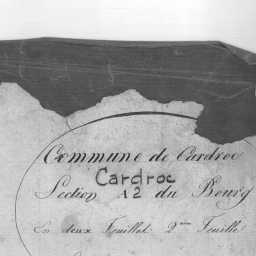 Commune de Cardroc
Cardroc
Section A2 du Bourg
En deux Feuilles 2me Feuille